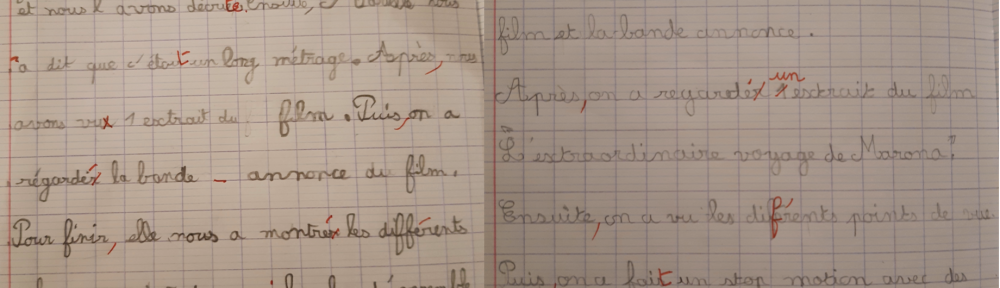 et nous l'avons décrite. Ensuite,
l'a dit que c'était un long métrage. Après, nous
avons vux 1 extrait du film. Puis, on a
régardéx la bande - annonce du film.
Pour finir, elle nous a montréx les différents
film et la bande annonce.
Après, on a regardéx un extrait du film
"L'extraordinaire voyage de Marona".
Ensuite, on a vu les diférents points de vue.
Puis, on a fait un stop motion avec des